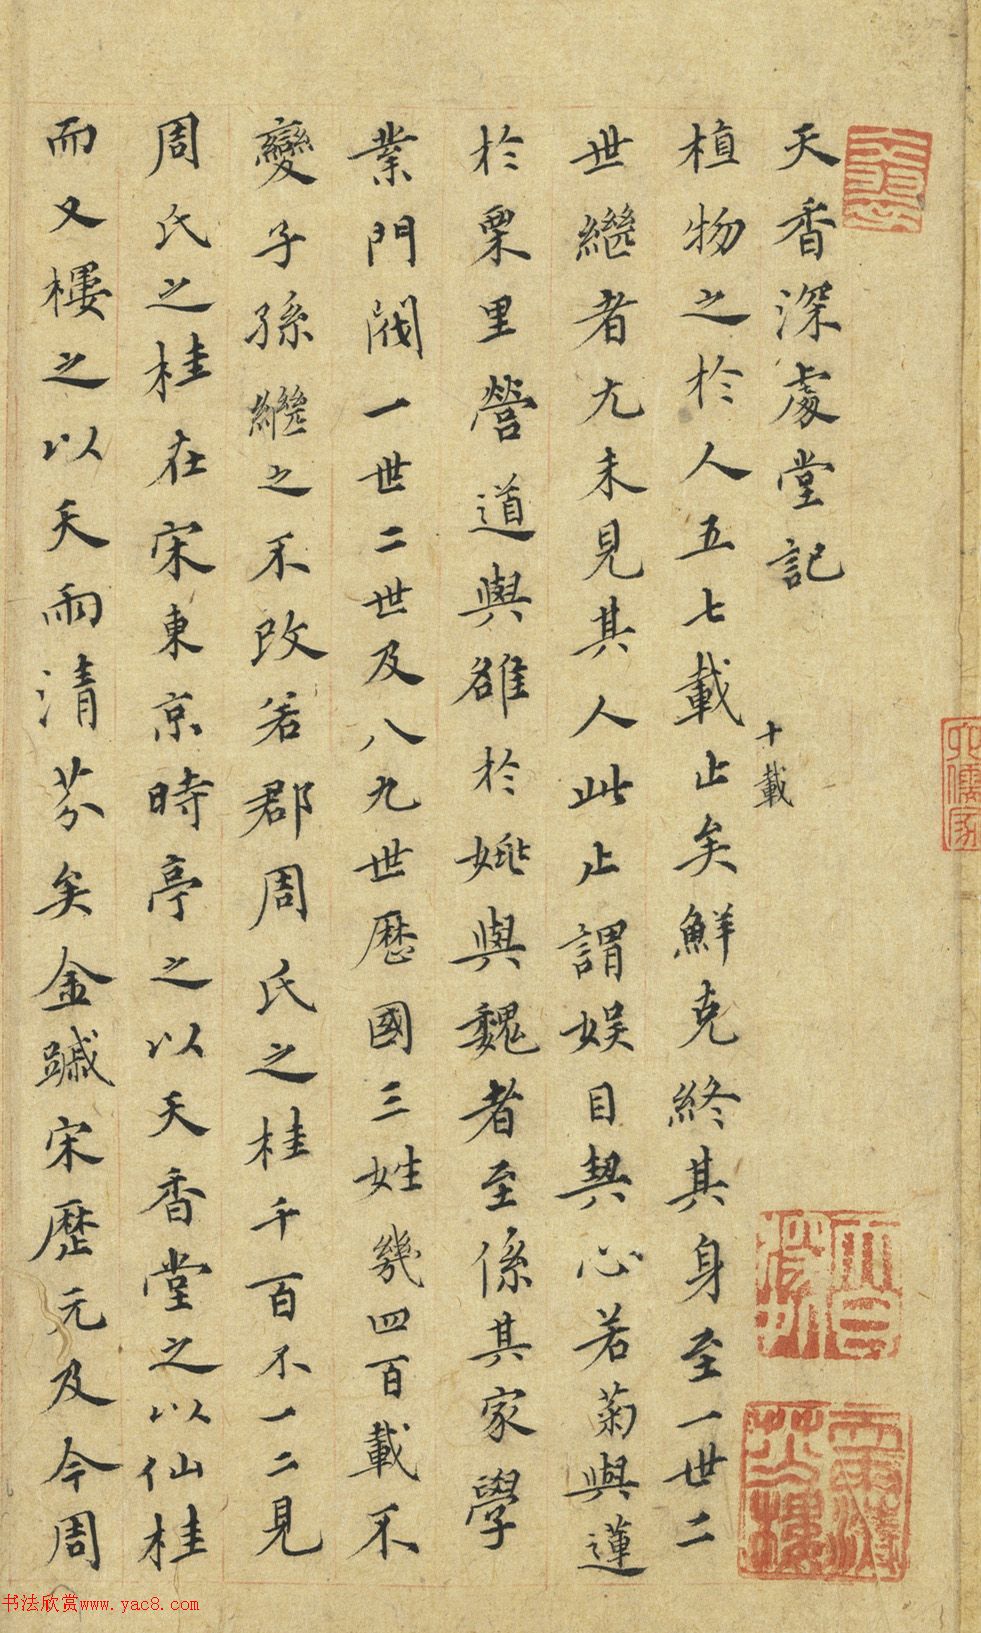 天香深處堂記
植物之於人五七載止矣鮮克終其身至一世二
十載
世繼者尤未見其人此止謂娛目契心若菊與蓮
於栗里營道與雒於姚與魏者至係其家學
業門閥一世二世及八九世歷國三姓幾四百載不
變子孫繼之不改若郡周氏之桂千百不一二見
周氏之桂在宋東京時亭之以天香堂之以仙桂
而又樓之以天雨清芬矣金蹴宋歷元及今周
天雨清芬樓
六儒家
书法欣赏www.yac8.com